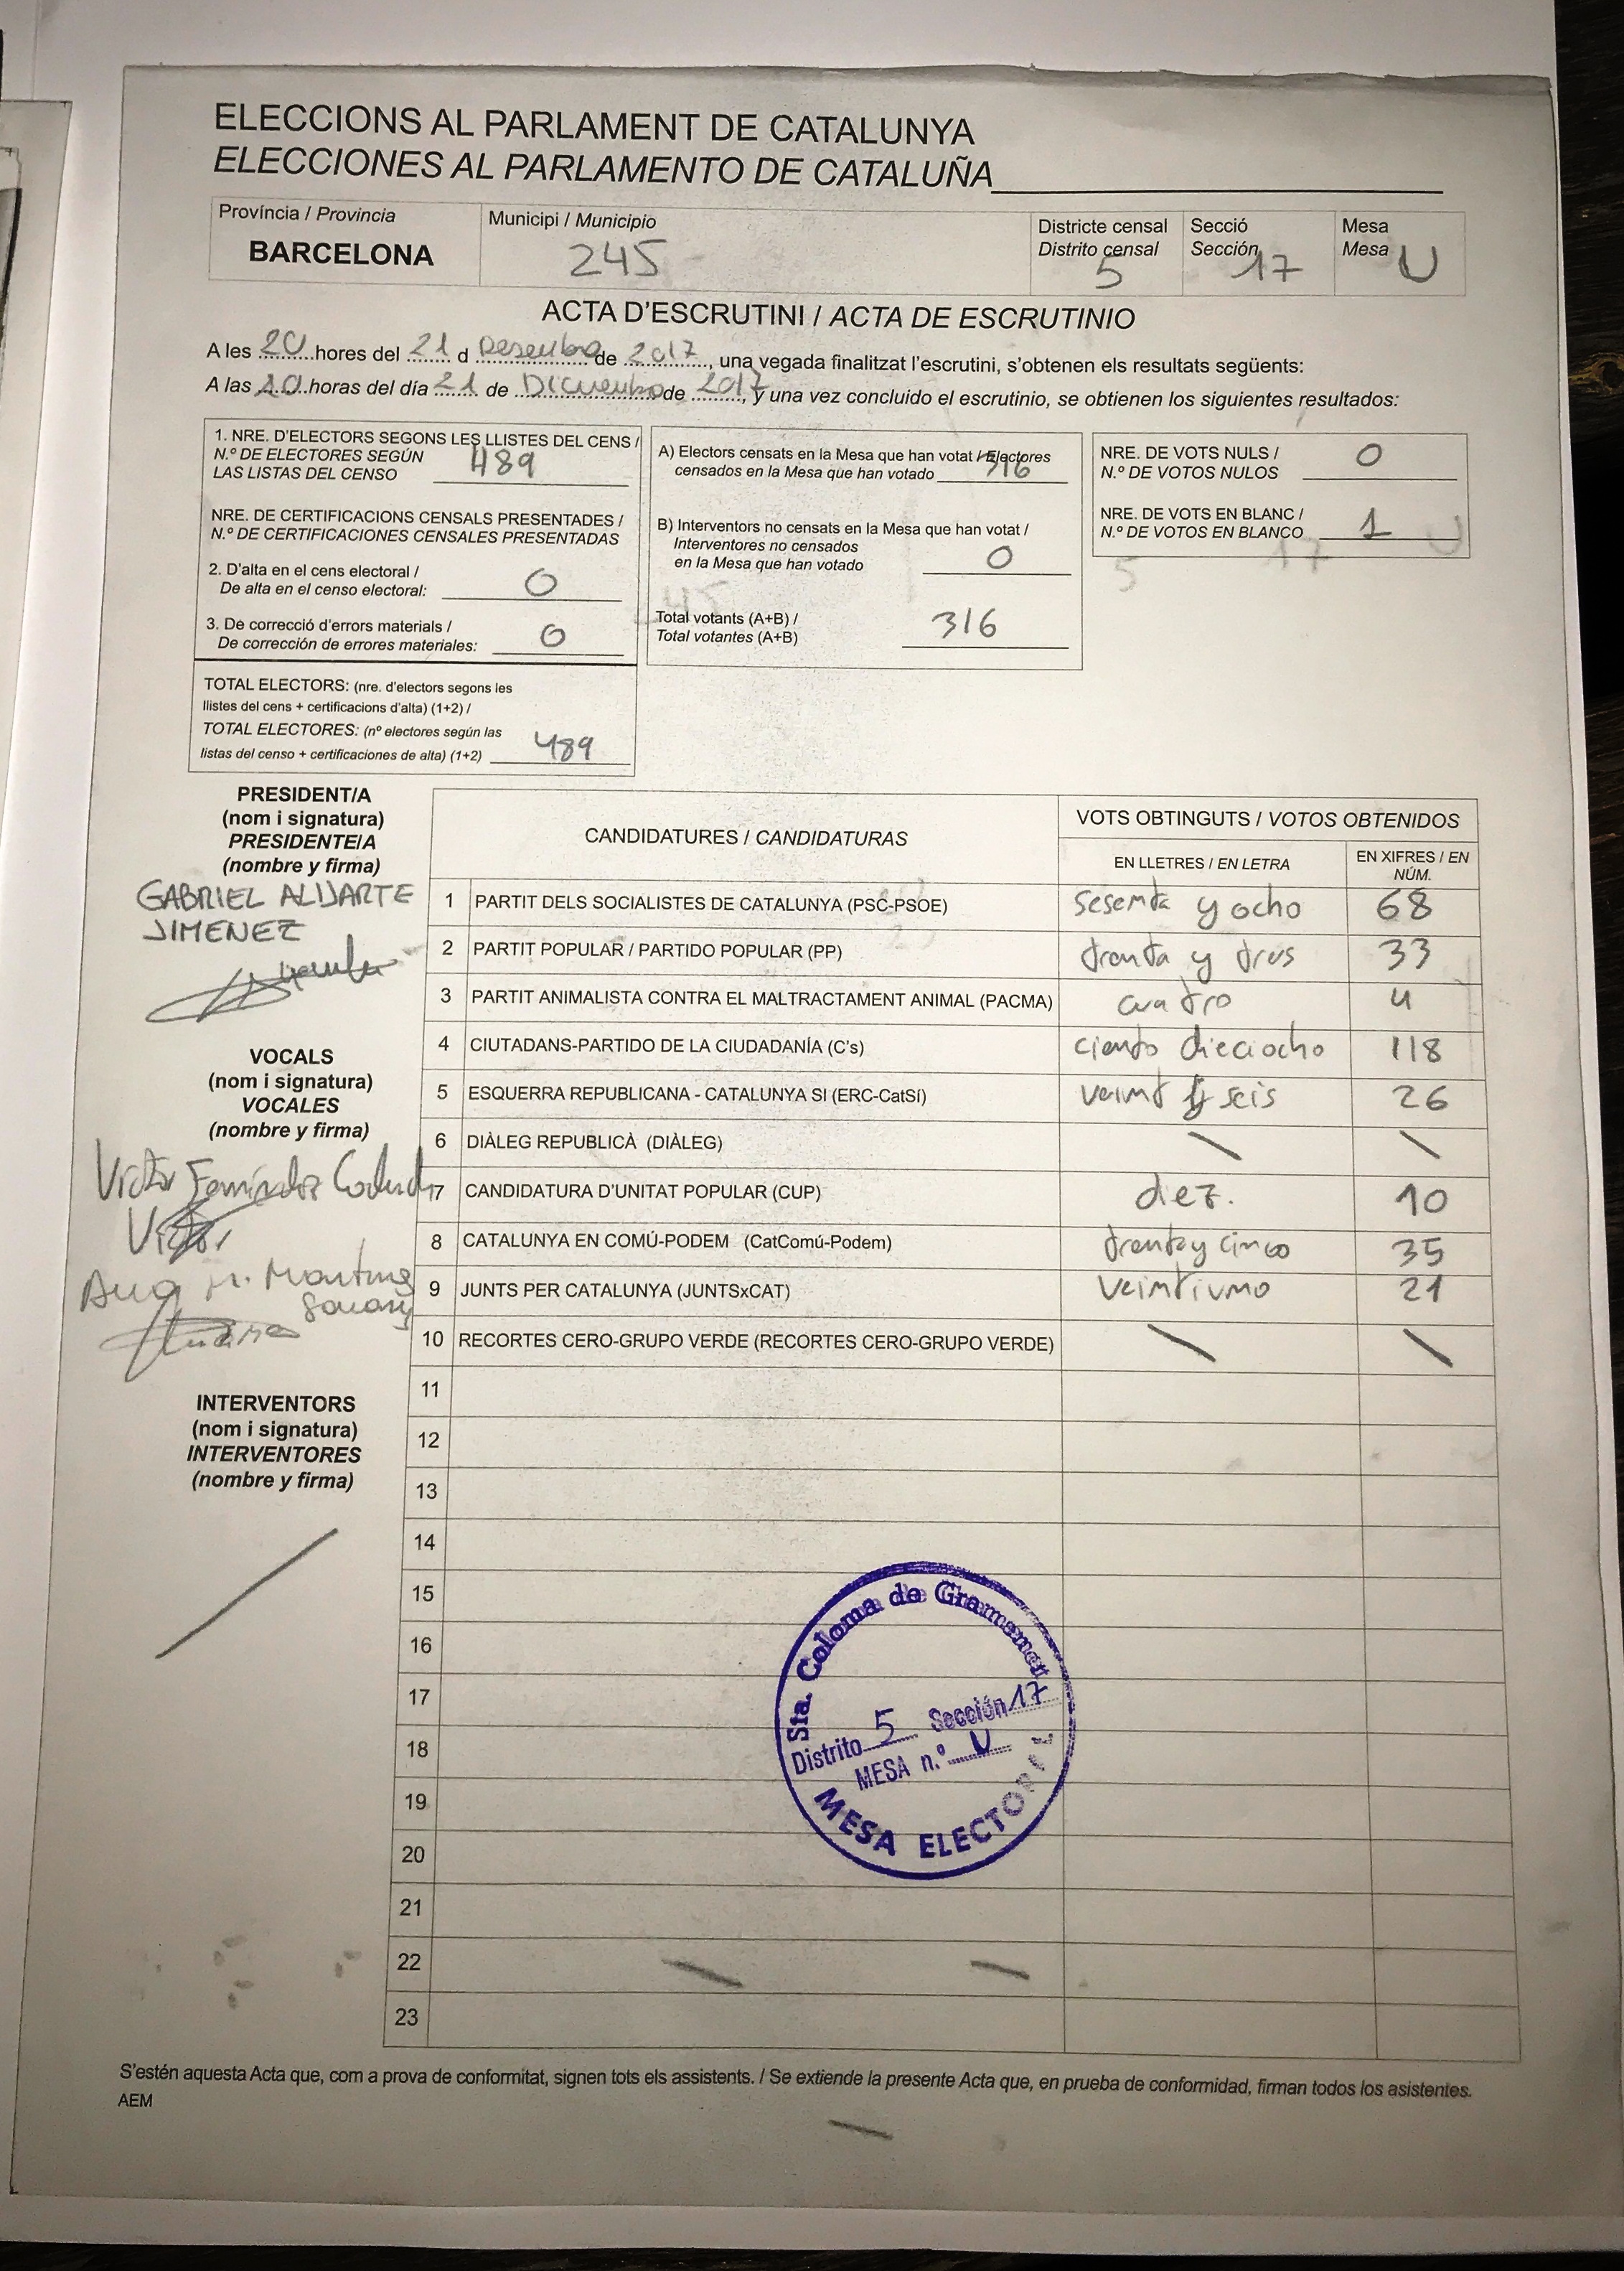 ELECCIONS AL PARLAMENT DE CATALUNYA
ELECCIONES AL PARLAMENTO DE CATALUÑA
Província / Provincia
BARCELONA
Municipi / Municipio
245
Districte censal
Distrito censal
5
Secció
Sección
17
Mesa
Mesa
U
ACTA D'ESCRUTINI / ACTA DE ESCRUTINIO
A les 20 hores del 21 d Desembre de 2017, una vegada finalitzat l'escrutini, s'obtenen els resultats següents:
A las 20 horas del día 21 de Diciembre de 2017, y una vez concluido el escrutinio, se obtienen los siguientes resultados:
1. NRE. D'ELECTORS SEGONS LES LLISTES DEL CENS /
N.º DE ELECTORES SEGÚN
LAS LISTAS DEL CENSO 489
NRE. DE CERTIFICACIONS CENSALS PRESENTADES /
N.º DE CERTIFICACIONES CENSALES PRESENTADAS
2. D'alta en el cens electoral /
De alta en el censo electoral: 0
3. De correcció d'errors materials /
De corrección de errores materiales: 0
TOTAL ELECTORS: (nre. d'electors segons les
llistes del cens + certificacions d'alta) (1+2) /
TOTAL ELECTORES: (nº electores según las
listas del censo + certificaciones de alta) (1+2) 489
A) Electors censats en la Mesa que han votat / Electores
censados en la Mesa que han votado 316
B) Interventors no censats en la Mesa que han votat /
Interventores no censados
en la Mesa que han votado 0
Total votants (A+B) /
Total votantes (A+B) 316
NRE. DE VOTS NULS /
N.º DE VOTOS NULOS 0
NRE. DE VOTS EN BLANC /
N.º DE VOTOS EN BLANCO 1
PRESIDENT/A
(nom i signatura)
PRESIDENTE/A
(nombre y firma)
GABRIEL ALIJARTE
JIMENEZ
VOCALS
(nom i signatura)
VOCALES
(nombre y firma)
Victor Fernández
Victor
Ana M. Martinez
INTERVENTORS
(nom i signatura)
INTERVENTORES
(nombre y firma)
CANDIDATURES / CANDIDATURAS
VOTS OBTINGUTS / VOTOS OBTENIDOS
EN LLETRES / EN LETRA
EN XIFRES / EN
NÚM.
1 PARTIT DELS SOCIALISTES DE CATALUNYA (PSC-PSOE) sesenta y ocho 68
2 PARTIT POPULAR / PARTIDO POPULAR (PP) trenta y tres 33
3 PARTIT ANIMALISTA CONTRA EL MALTRACTAMENT ANIMAL (PACMA) cuatro 4
4 CIUTADANS-PARTIDO DE LA CIUDADANÍA (C's) ciento dieciocho 118
5 ESQUERRA REPUBLICANA - CATALUNYA SI (ERC-CatSí) veint y seis 26
6 DIÀLEG REPUBLICÀ (DIÀLEG)
7 CANDIDATURA D'UNITAT POPULAR (CUP) diez. 10
8 CATALUNYA EN COMÚ-PODEM (CatComú-Podem) trenta y cinco 35
9 JUNTS PER CATALUNYA (JUNTSxCAT) veintiuno 21
10 RECORTES CERO-GRUPO VERDE (RECORTES CERO-GRUPO VERDE)
11
12
13
14
15
16
17
18
19
20
21
22
23
Sta. Coloma de Gramenet
Distrito 5 Sección 17
MESA n.º U
MESA ELECTORAL
S'estén aquesta Acta que, com a prova de conformitat, signen tots els assistents. / Se extiende la presente Acta que, en prueba de conformidad, firman todos los asistentes.
AEM